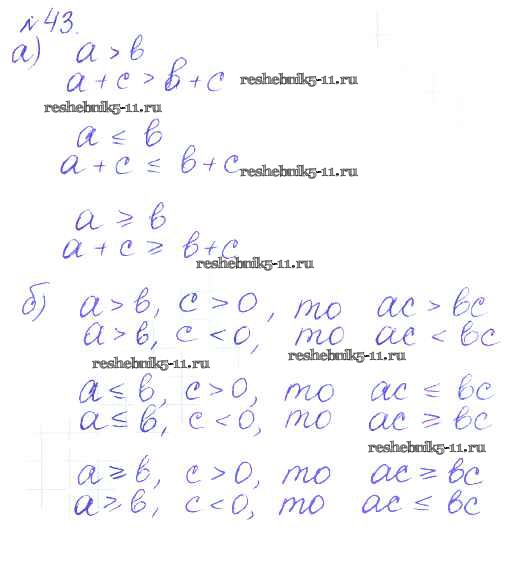 №43.
а) a > b
a + c > b + c reshebnik5-11.ru
reshebnik5-11.ru
a ≤ b
a + c ≤ b + c reshebnik5-11.ru
a ≥ b
a + c ≥ b + c
reshebnik5-11.ru
б) a > b, c > 0, то ac > bc
a > b, c < 0, то ac < bc
reshebnik5-11.ru reshebnik5-11.ru
a ≤ b, c > 0, то ac ≤ bc
a ≤ b, c < 0, то ac ≥ bc
reshebnik5-11.ru
a ≥ b, c > 0, то ac ≥ bc
a ≥ b, c < 0, то ac ≤ bc